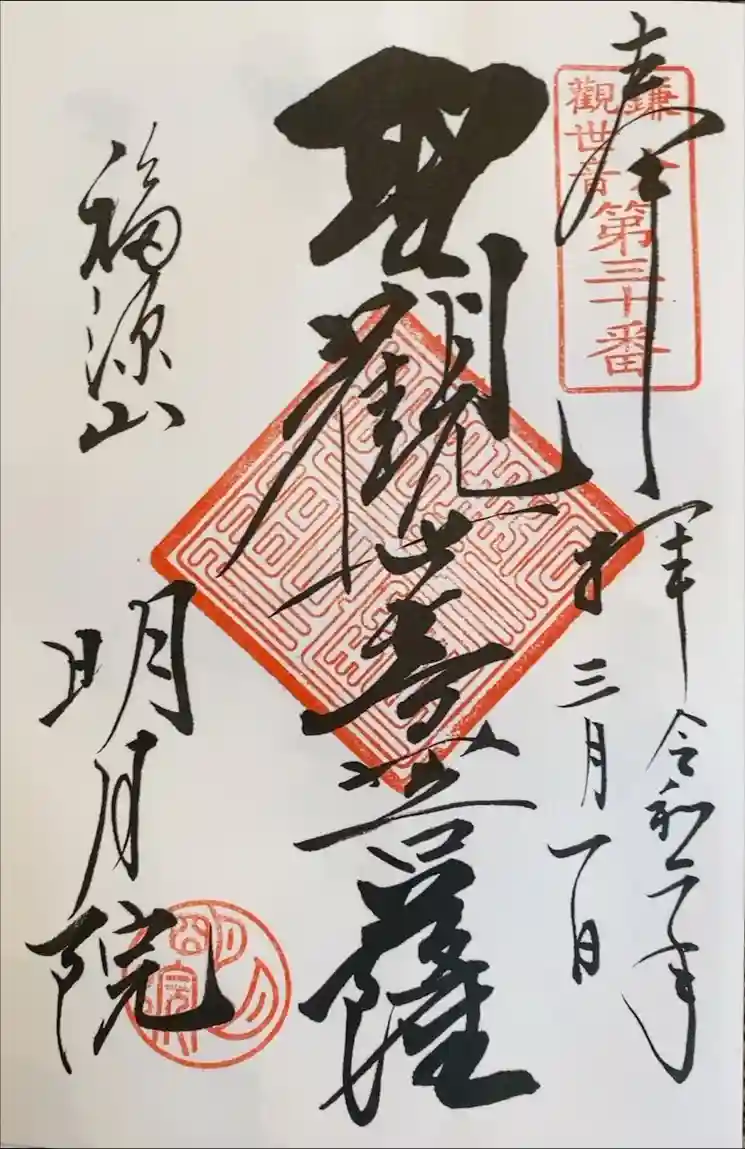 奉拝
鎌倉
觀世音
第三十番
令和二年
三月一日
聖觀世音菩薩
福源山
明月院